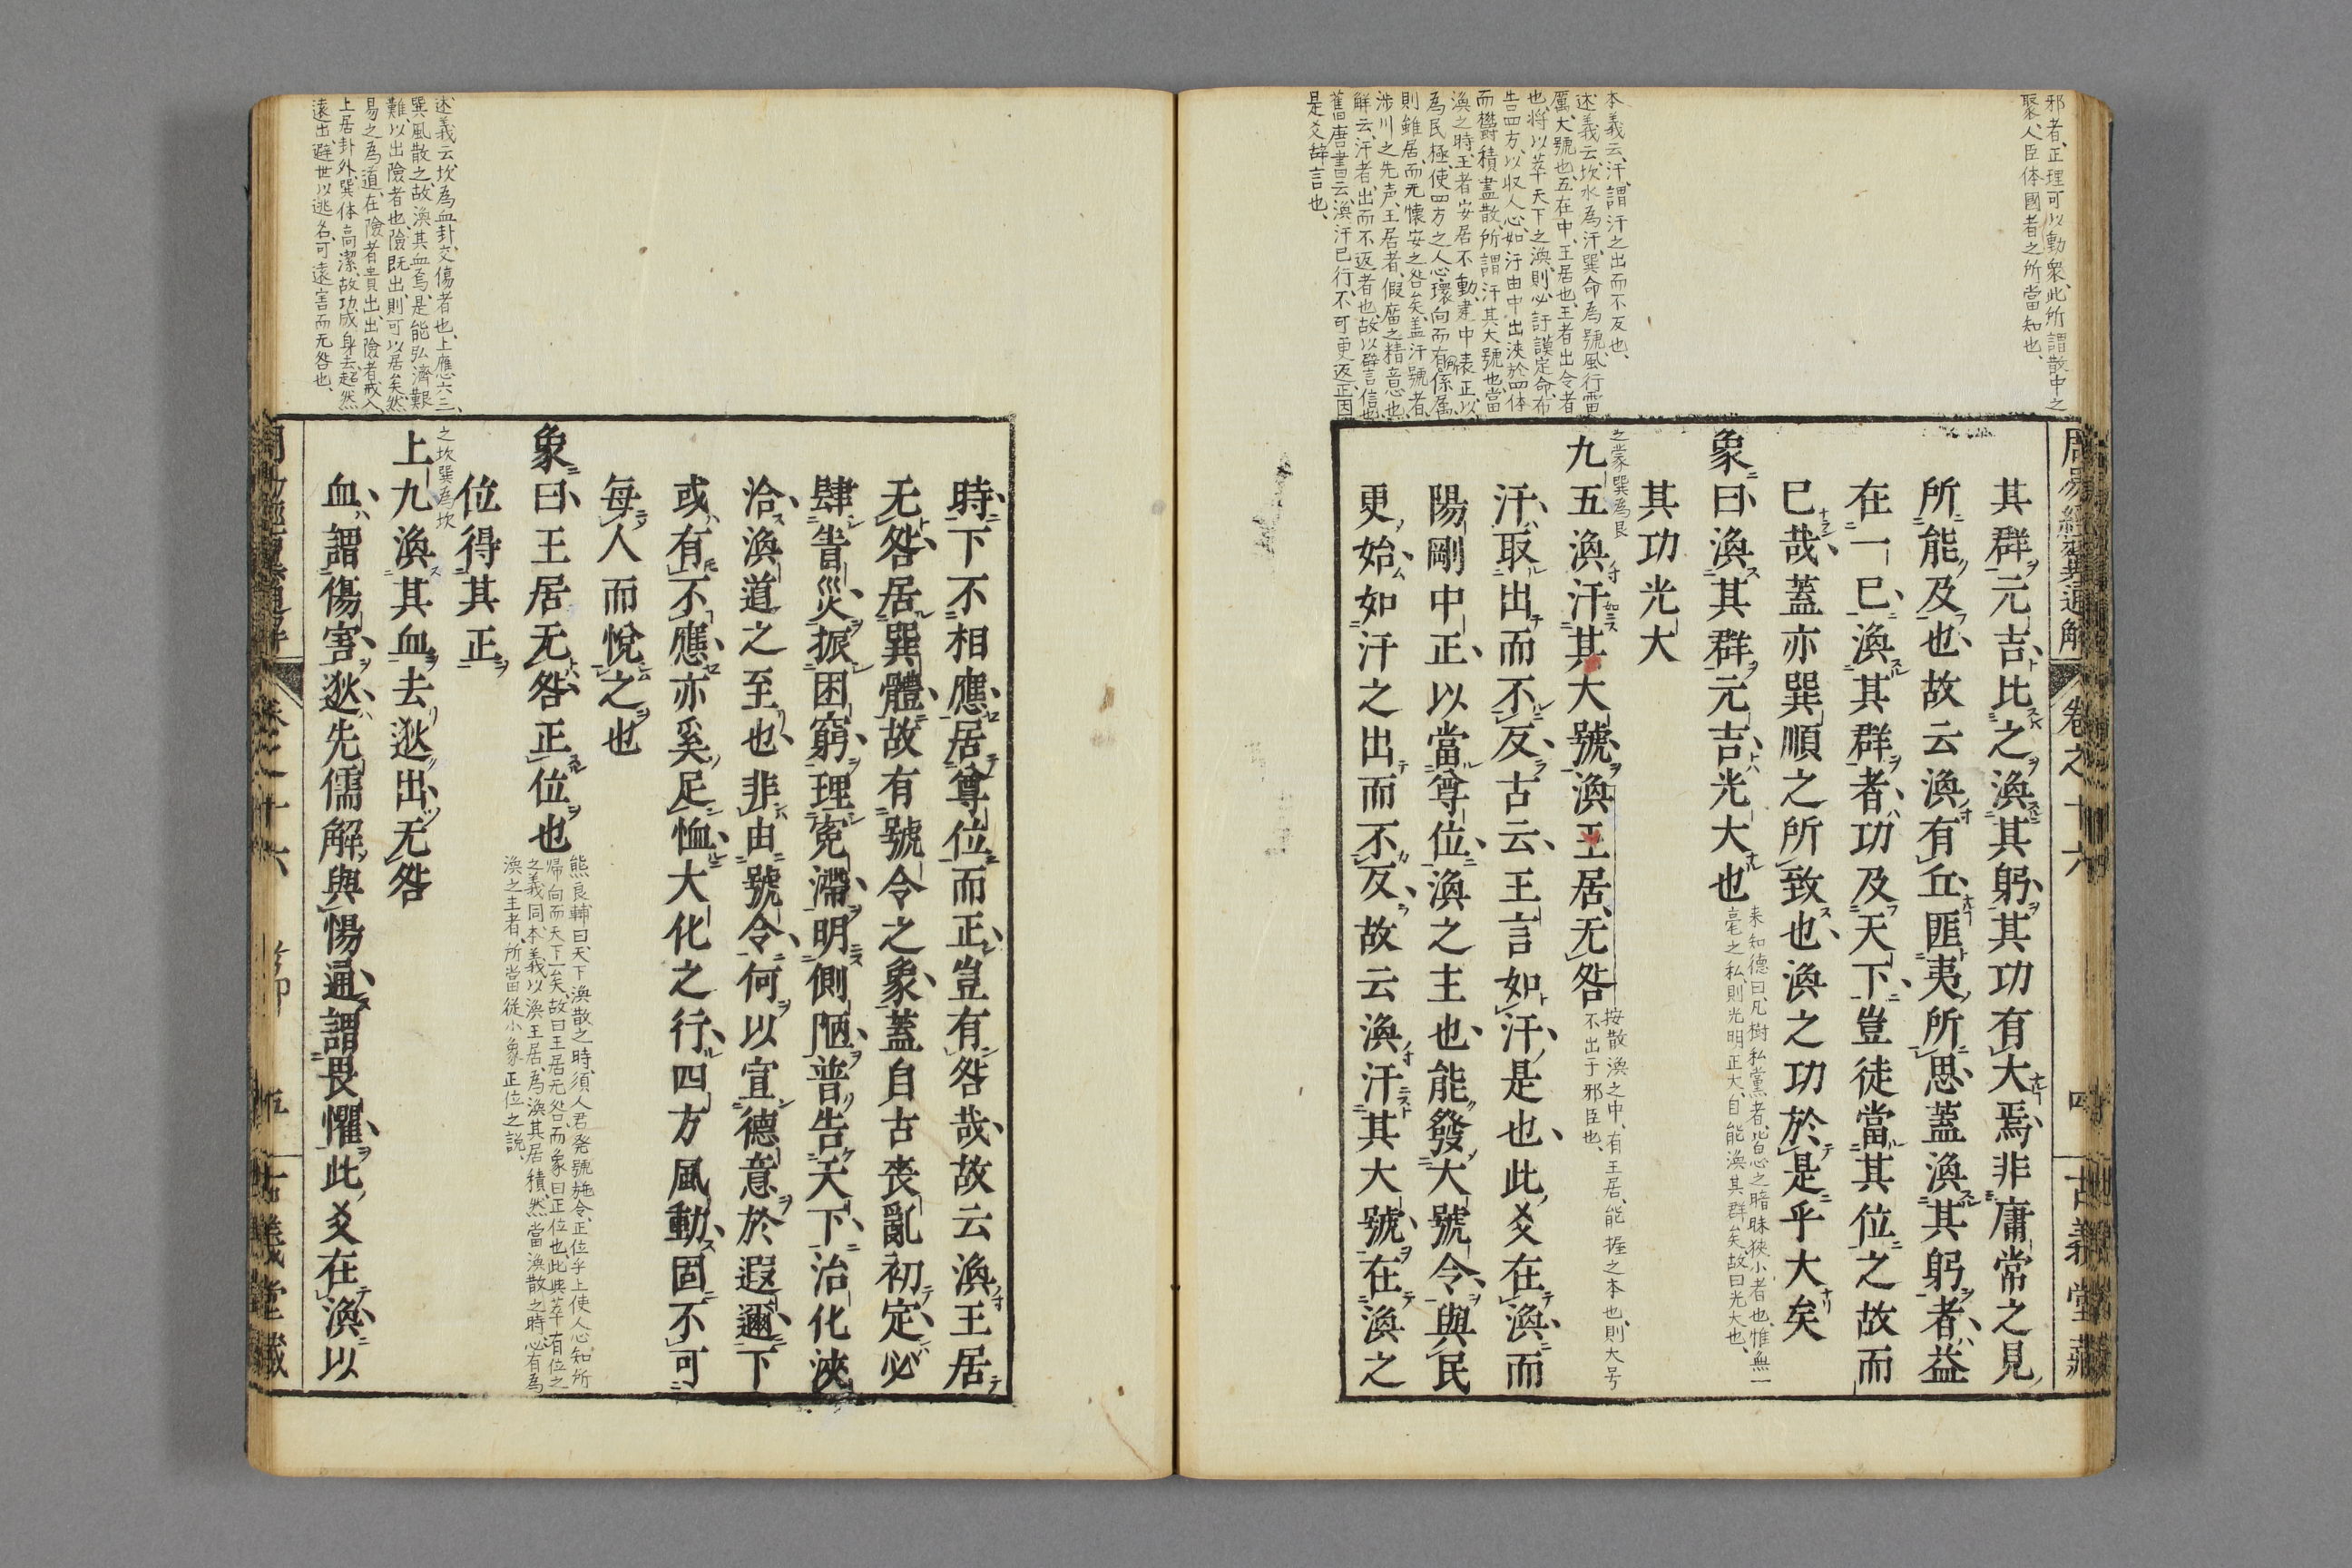 邪者、正理可以動衆、此所謂散中之
聚、人臣体國者之所當知也、
本義云、汗、謂汗之出而不反也、
述義云、坎水為汗、巽命為號、風行雷
厲、大號也、五在中、王居也、王者出令者
也、將以萃天下之渙、則必訏謨定命、布
告四方、以収人心、如汗由中出浹於四体
而欝積盡散、所謂汗其大號也、當
渙之時、王者安居不動、建中表正、以
為民極、使四方之人心環向而有所係属、
則雖居、而无懐安之咎矣、盖汗號者、
渉川之先声、王居者、假庿之精意也、
解云、汗者、出而不返者也、故以辟言信也、
舊唐書云、渙汗已行、不可更返、正因
是爻辞言也、
周易經翼通解 卷之十六 四 古義堂藏
其群元吉比之渙其躬其功有大焉非庸常之見
所能及也故云渙有丘匪夷所思蓋渙其躬者益
在一己渙其群者功及天下豈徒當其位之故而
已哉蓋亦巽順之所致也渙之功於是乎大矣
象曰渙其群元吉光大也
来知德曰、凡樹私黨者、皆心之暗昧狹小者也、惟無一
毫之私、則光明正大、自能渙其群矣、故曰光大也、
其功光大
之蒙巽為艮
九五渙汗其大號渙王居无咎
按散渙之中、有王居、能握之本也、則大号
不出于邪臣也、
汗取出而不反古云王言如汗是也此爻在渙而
陽剛中正以當尊位渙之主也能發大號令與民
更始如汗之出而不反故云渙汗其大號在渙之
述義云、坎為血卦、爻傷者也、上應六三、
巽風散之、故渙其血焉、是能弘濟艱
難、以出險者也、險既出、則可以居矣、然
易之為道、在險者貴出、出險者戒入、
上居卦外、巽体高潔、故功成身去、超然
遠出、避世以逃名、可遠害而无咎也、
時下不相應居尊位而正豈有咎哉故云渙王居
无咎居巽體故有號令之象蓋自古喪亂初定必
肆眚災振困窮理寃滯明側陋普告天下治化浹
洽渙道之至也非由號令何以宣德意於遐邇下
或有不應亦奚足恤大化之行四方風動固不可
每人而悅之也
象曰王居无咎正位也
熊良輔曰、天下渙散之時、須人君発號施令、正位乎上、使人心知所
帰向、而天下一矣、故曰王居无咎、而象曰正位也、此與萃有位之
之義同、本義以渙王居、為渙其居積、然當渙散之時、必有為
渙之主者、所當従小象正位之説、
位得其正
之坎巽為坎
上九渙其血去逖出无咎
血謂傷害逖先儒解與惕通謂畏懼此爻在渙以
卷之十六 五 古義堂藏